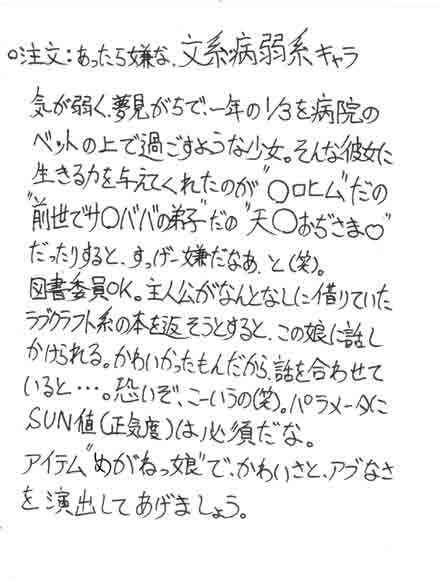 ○注文:あったら嫌な、文系病弱系キャラ
気が弱く、夢見がちで、一年の1/3を病院の
ベットの上で過ごすような少女。そんな彼女に
生きる力を与えてくれたのが"○ロヒム"だの
"前世でサ○ババの弟子"だの"天○おぢさま♡"
だったりすると、すっげー嫌だなあ、と(笑)。
図書委員OK。主人公がなんとなしに借りていた
ラブクラフト系の本を返そうとすると、この娘に話し
かけられる。かわいかったもんだから、話を合わせて
いると…。恐いぞ、こーいうの(笑)。パラメータに
SUN値(正気度)は必須だな。
アイテム"めがねっ娘"で、かわいさと、アブなさ
を演出してあげましょう。